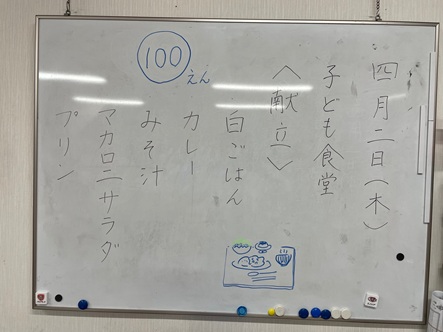 四月二日(木)
子ども食堂
〈献立〉
白ごはん
カレー
みそ汁
マカロニサラダ
プリン
100えん